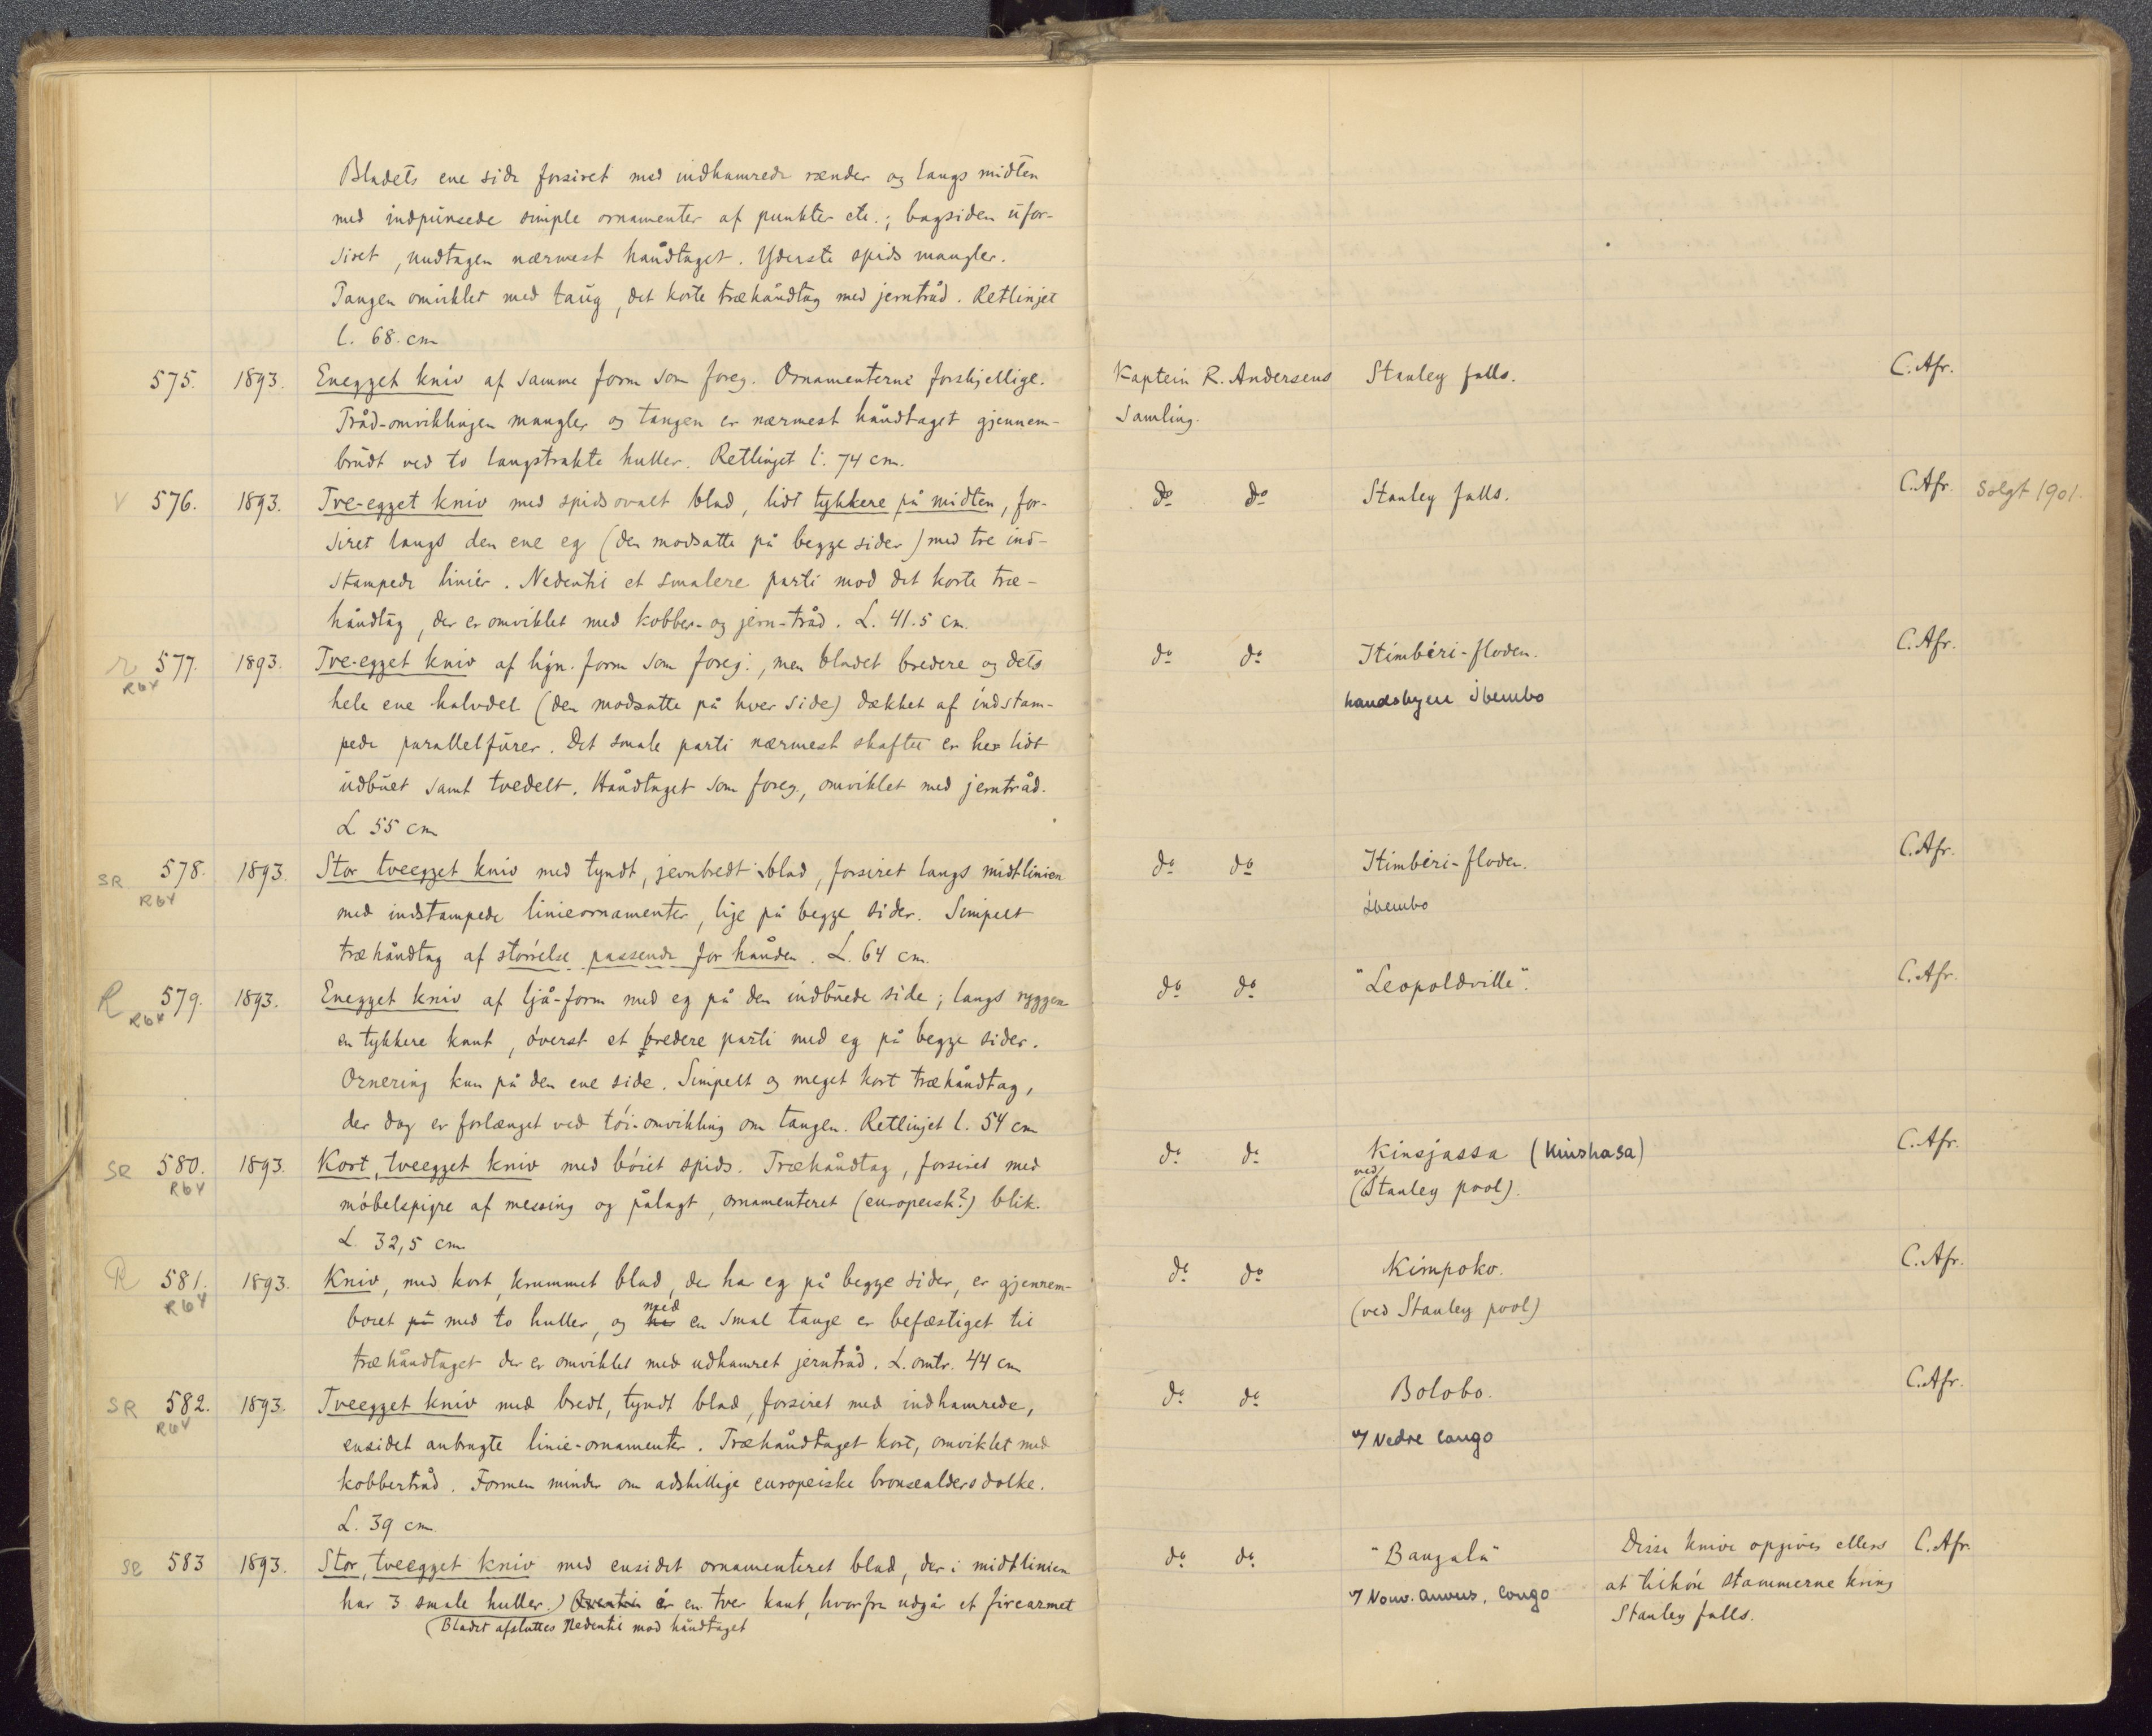 Bladets ene side forsiret med indhamrede render og langs midten
med indpunsede simple ornamenter af punkter etc.; bagsiden ufor-
siret, undtagen nærmest håndtaget. Yderste spids mangler.
Tangen omviklet med taug, det korte træhåndtag med jerntråd. Retlinjet
l. 68. cm
575. 1893. Enegget kniv af samme form som foreg. Ornamenterne forskjellige. Kaptein R. Andersens Stanley falls. C. Afr.
Tråd-omviklingen mangler og tangen er nærmest håndtaget gjennem- Samling.
brudt ved to langstrakte huller. Retlinjet l. 74 cm.
V 576. 1893. Tve-egget kniv med spidsovalt blad, lidt tykkere på midten, for- do do Stanley falls. C. Afr. Solgt 1901.
siret langs den ene eg (den modsatte på begge sider) med tre ind-
stampede linier. Nedentil et smalere parti mod det korte træ-
håndtag, der er omviklet med kobber- og jern-tråd. L. 41.5 cm.
r 577. 1893. Tve-egget kniv af lign. form som foreg., men bladet bredere og dets do do Itimbiri-floden. C. Afr.
R64 hele ene halvdel (den modsatte på hver side) dækket af indstam- handsbyen Ibembo
pede parallelfurer. Det smale parti nærmest skaftet er her lidt
udbuet samt tvedelt. Håndtaget som foreg., omviklet med jerntråd.
L. 55 cm
SR 578. 1893. Stor tveegget kniv med tyndt, jevnbredt blad, forsiret langs midtlinien do do Itimbiri-floden. C. Afr.
R64 med indstampede linieornamenter, lige på begge sider. Simpelt Ibembo
træhåndtag af størrelse passende for hånden. L. 64 cm.
R 579. 1893. Enegget kniv af ljå-form med eg på den indbuede side; langs ryggen do do "Leopoldville". C. Afr.
R64 en tykkere kant, øverst et bredere parti med eg på begge sider.
Ornering kun på den ene side. Simpelt og meget kort træhåndtag,
der dog er forlænget ved tøi-omvikling om tangen. Retlinjet l. 54 cm
SR 580. 1893. Kort, tveegget kniv med bøiet spids. Træhåndtag, forsiret med do do Kinsjassa (Kinshasa) C. Afr.
R64 møbelspigre af messing og pålagt, ornamenteret (europeisk?) blik. (ved Stanley pool).
L. 32,5 cm
R 581. 1893. Kniv, med kort, krummet blad, der har eg på begge sider, er gjennem- do do Kimpoko. C. Afr.
R64 boret på med to huller, og her med en smal tange er befæstiget til (ved Stanley pool)
træhåndtaget der er omviklet med udhamret jerntråd. L. omtr. 44 cm
SR 582. 1893. Tveegget kniv med bredt, tyndt blad, forsiret med indhamrede, do do Bolobo. C. Afr.
R64 ensidet anbragte linie-ornamenter. Træhåndtaget kort, omviklet med Nedre Congo
kobbertråd. Formen minder om adskillige europeiske bronsealdersdolke.
L. 39 cm.
SR 583 1893. Stor, tveegget kniv med ensidet ornamenteret blad, der i midtlinien do do "Bangala" Disse knive opgives ellers C. Afr.
har 3 smale huller.) er en tver kant, hvorfra udgår et firearmet Nouv. Anvers, Congo at tilhøre stammerne kring
(Bladet afsluttes Nedentil mod håndtaget Stanley falls.